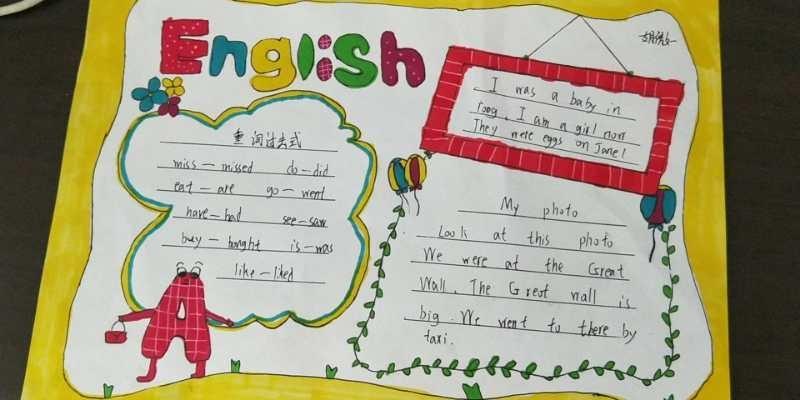 English
I was a baby in
I am a girl now
They were eggs on
重词过去式
miss—missed do—did
eat—ate go—went
have—had see—saw
buy—bought is—was
like—liked
A
My photo
Look at this photo
We were at the Great
Wall. The Great wall is
big. We went to there by
taxi.